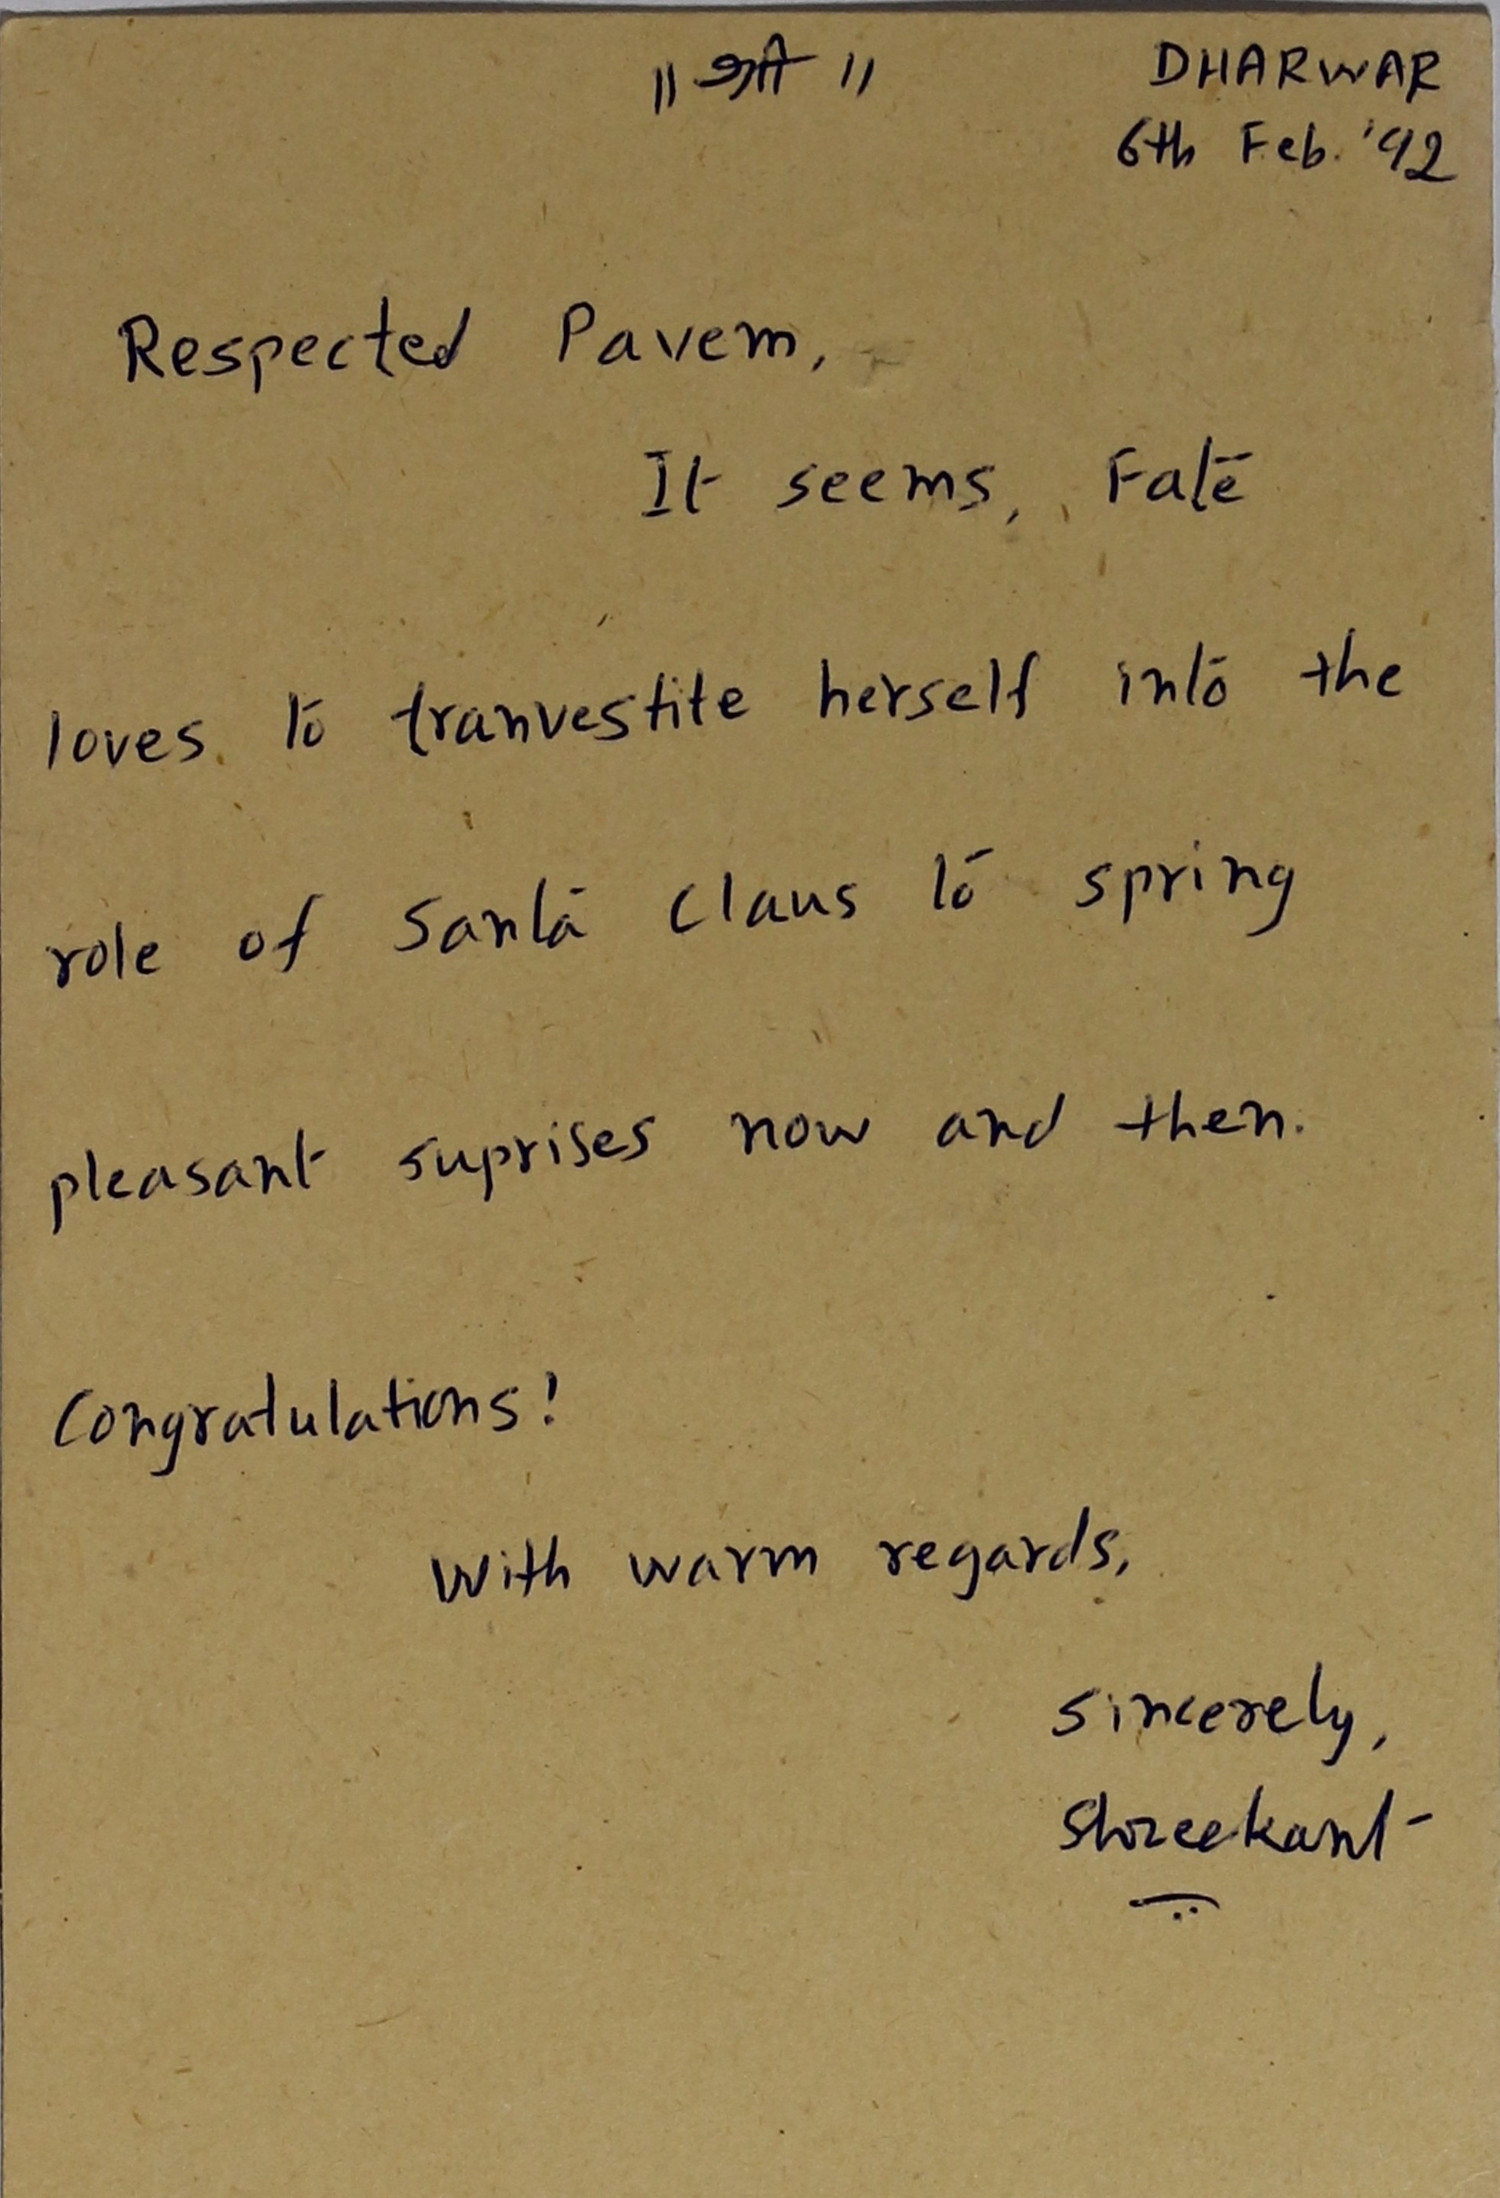 ॥ श्री ॥ DHARWAR
6th Feb. '92
Respected Pavem,
It seems, Fate
loves to tranvestite herself into the
role of Santa Claus to spring
pleasant suprises now and then.
Congratulations!
With warm regards,
Sincerely,
Shreekant